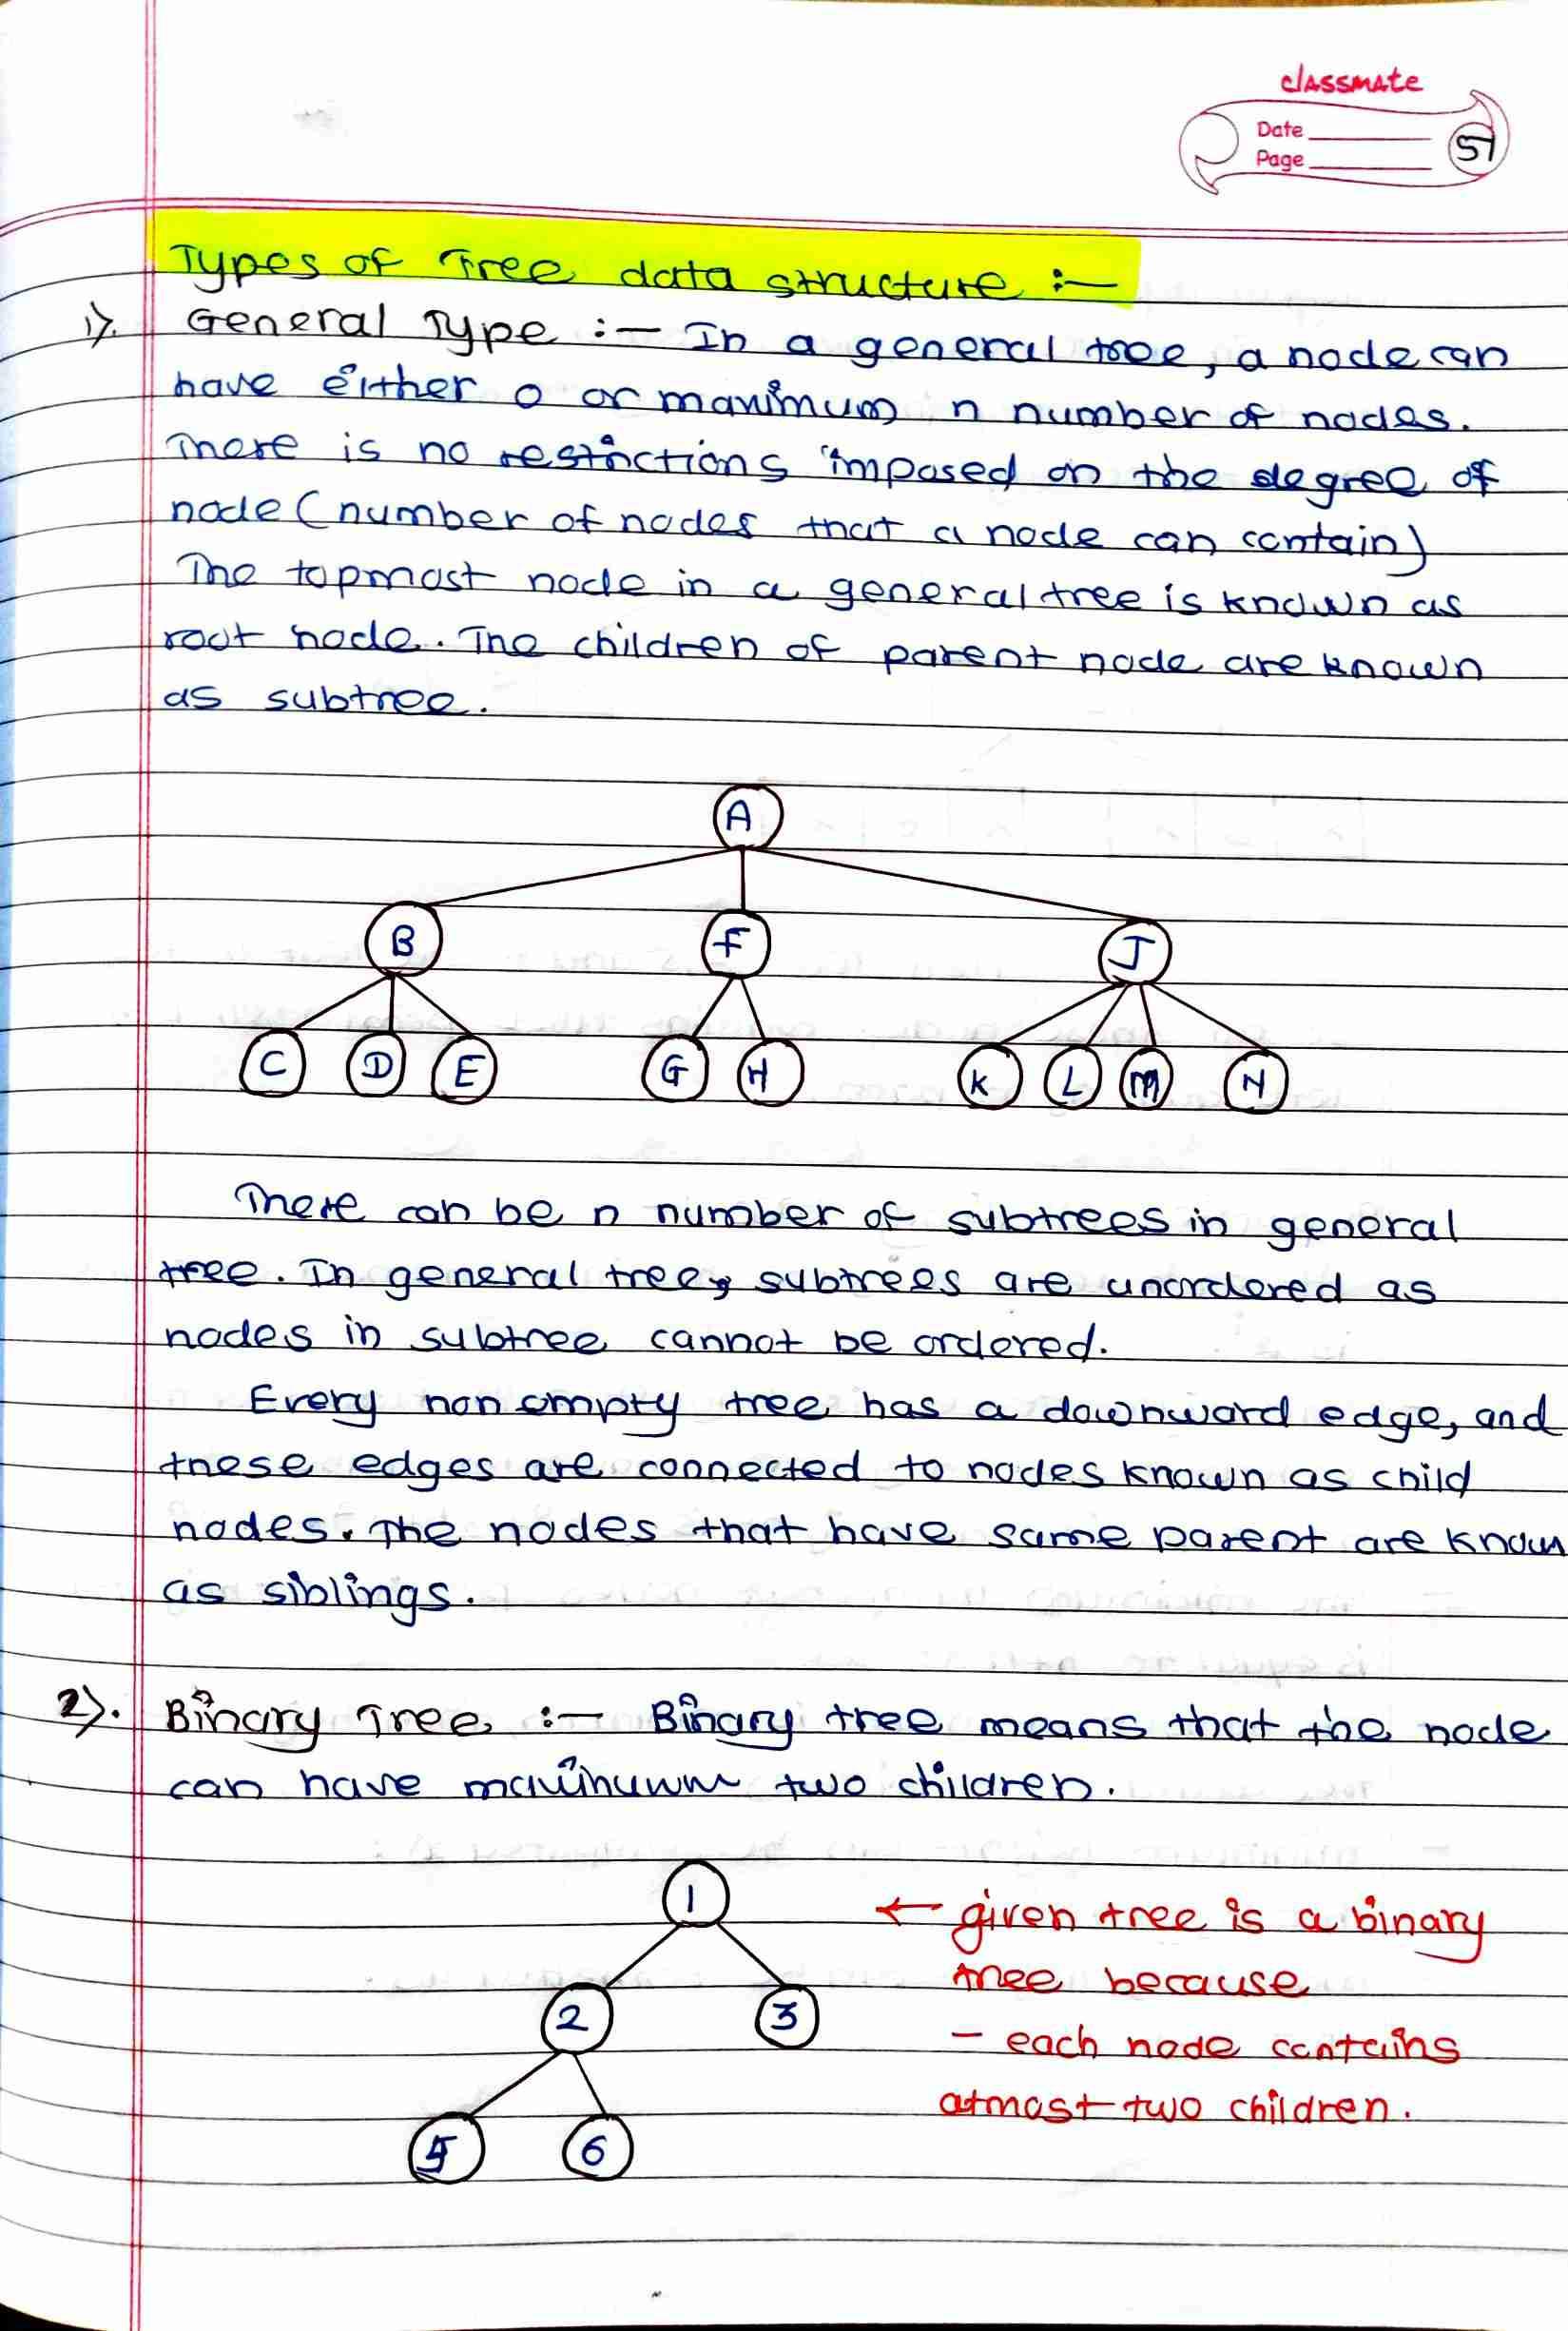 classmate
Date
Page
51
Types of Tree data structure :-
1). General Type :- In a general tree, a node can
have either 0 or maximum n number of nodes.
There is no restrictions imposed on the degree of
node (number of nodes that a node can contain)
The topmost node in a general tree is known as
root node. The children of parent node are known
as subtree.
A
B F J
C D E G H K L M N
There can be n number of subtrees in general
tree. In general tree, subtrees are unordered as
nodes in subtree cannot be ordered.
Every non empty tree has a downward edge, and
these edges are connected to nodes known as child
nodes. The nodes that have same parent are known
as siblings.
2). Binary Tree :- Binary tree means that the node
can have maximum two children.
1
← given tree is a binary
tree because
2 3
- each node contains
atmost two children.
5 6